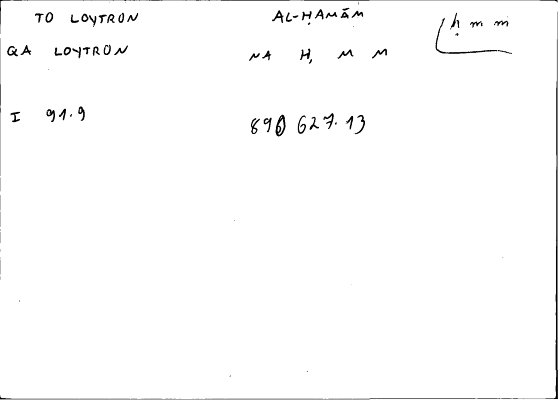 TO LOYTRON AL-ḤAMĀM ḥ m m
QA LOYTRON NA Ḥ M M
I 91.9 890 627.13